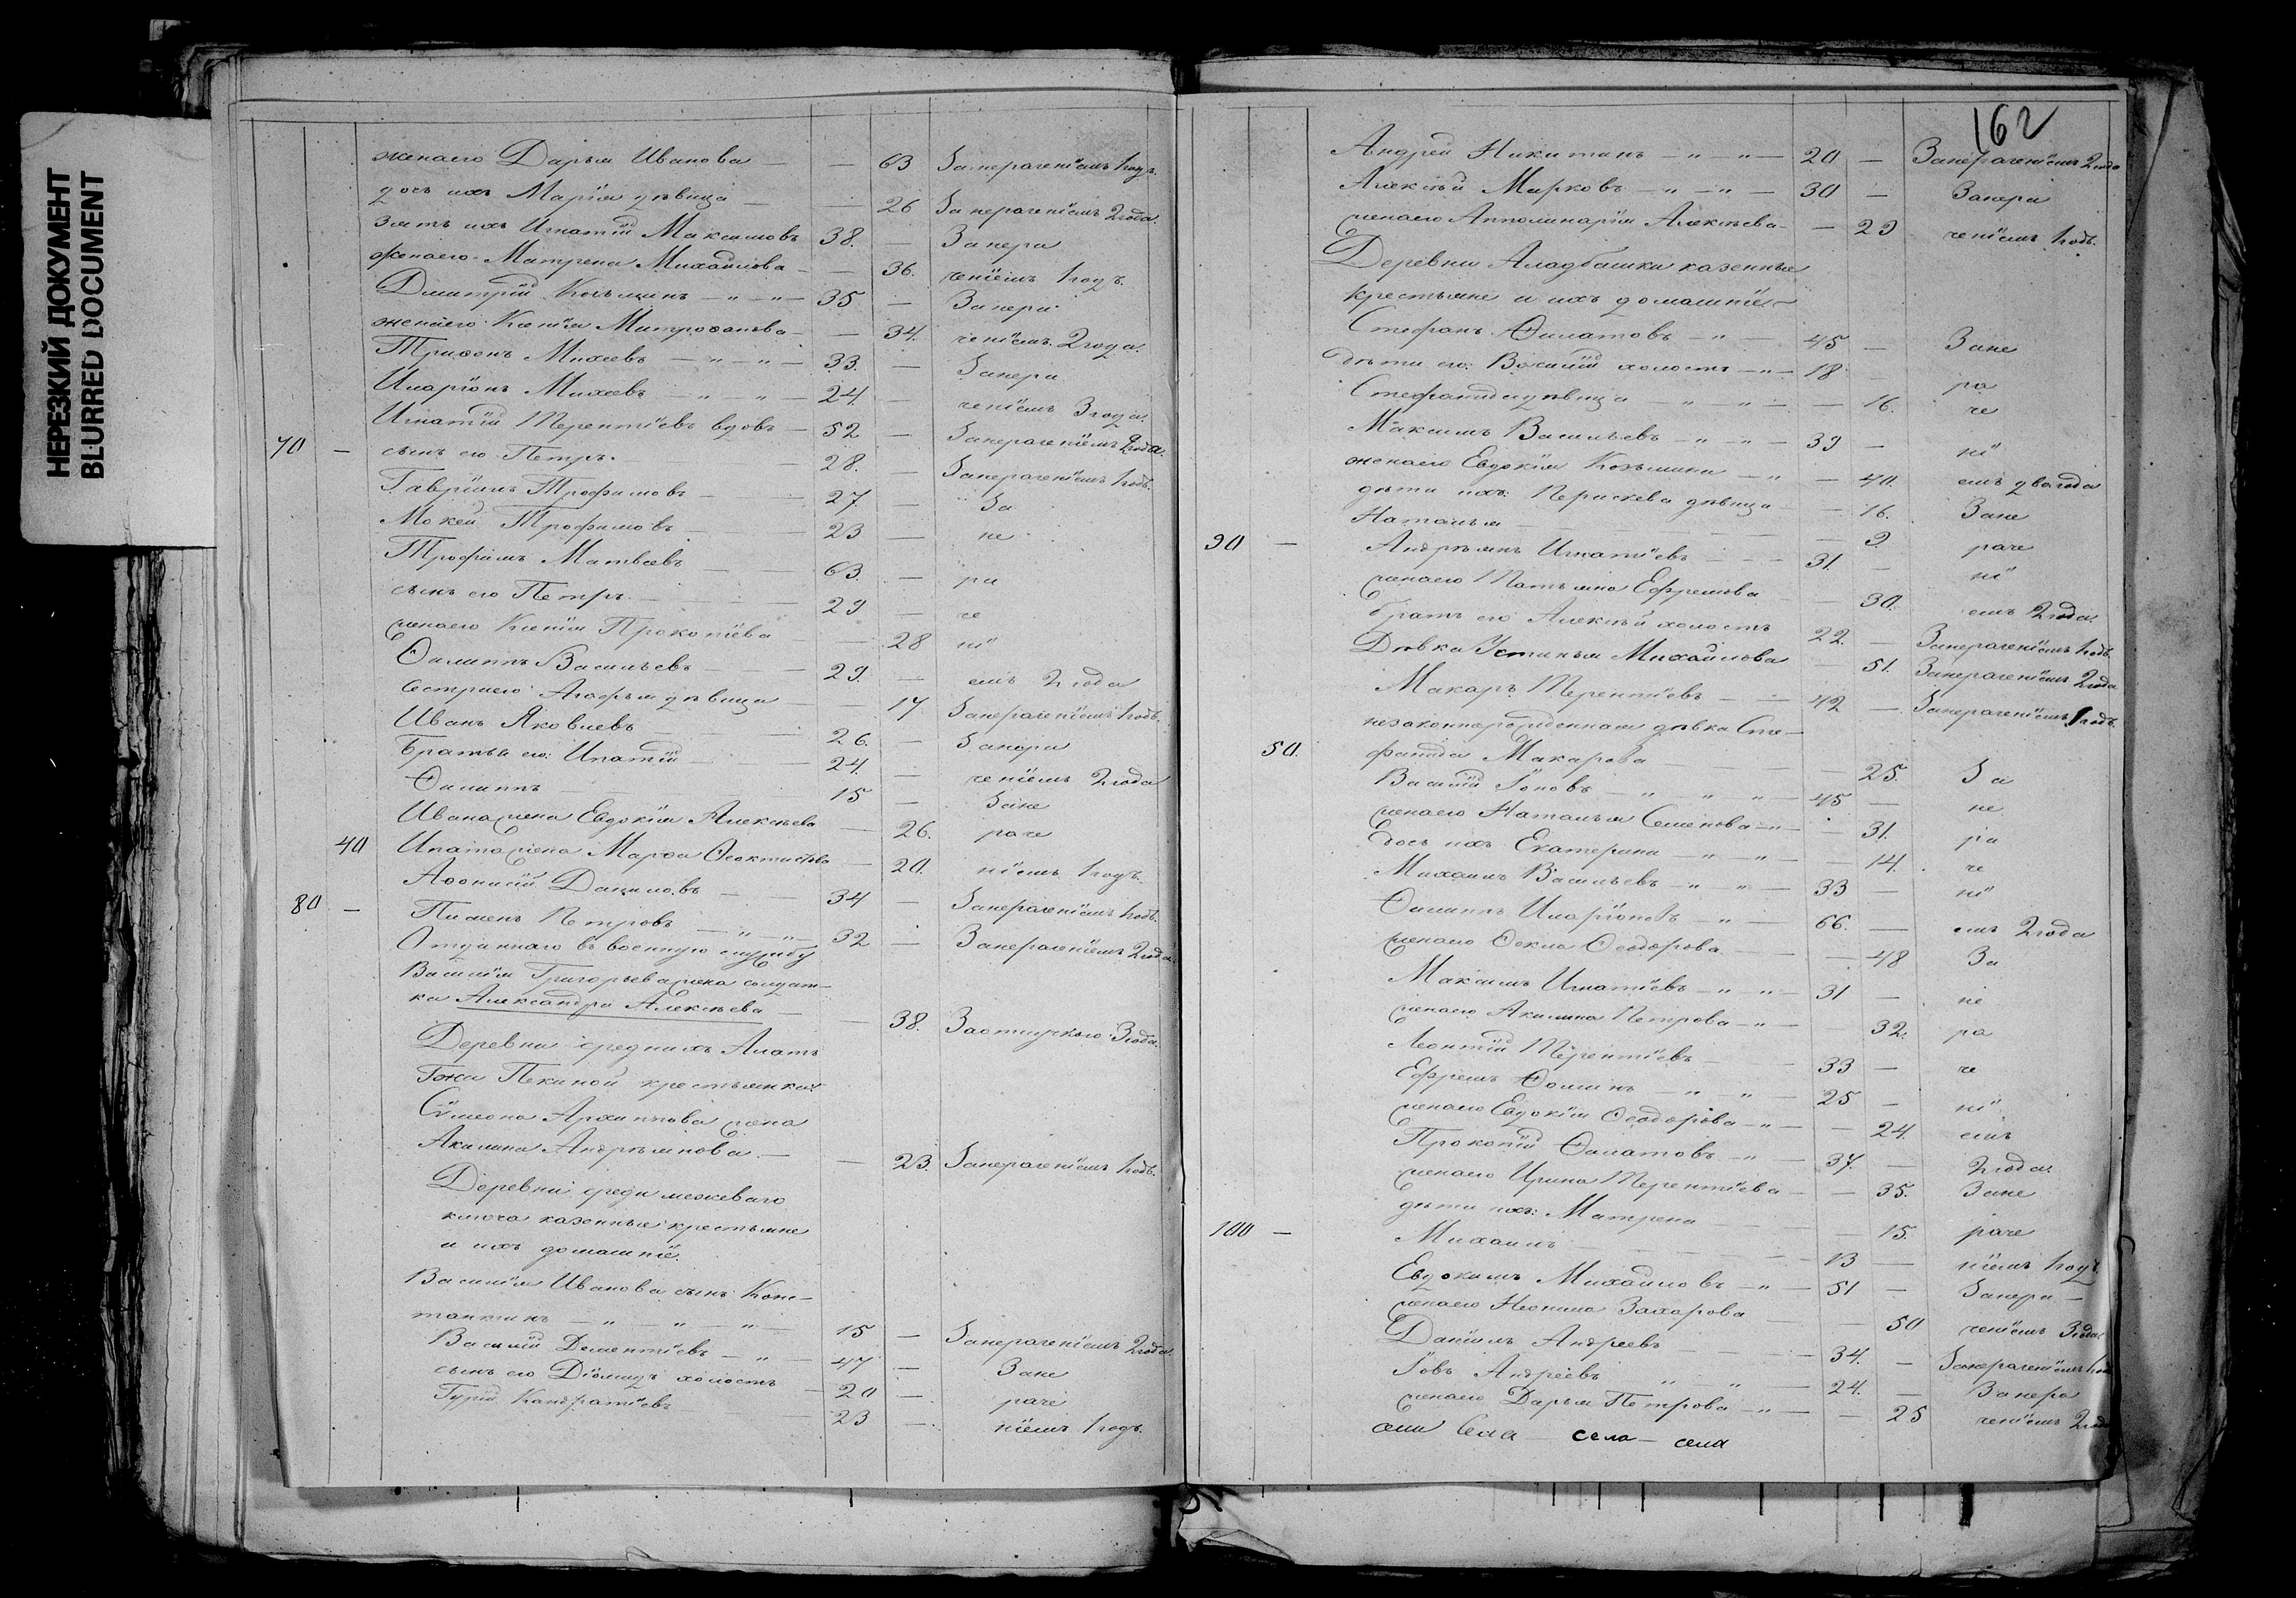 НЕРЕЗКИЙ ДОКУМЕНТ
BLURRED DOCUMENT
жена его Дарья Иванова — — 63 За нерачениемъ 1 годъ.
дочь ихъ Марія дѣвица — — 26 За нераченіемъ 2 года.
зять ихъ Игнатій Максимовъ 38. — За нера
жена его Матрена Михайлова — — 36. ченіемъ 1 годъ.
Дмитрій Козьминъ — " — " — 35 — За нера
жена его Ксенія Митрофанова — — 34. ченіемъ 2 года.
Трифонъ Михеевъ — " — " — 33. — За нера
Иларіонъ Михеевъ — " — " — 24. — ченіемъ 3 года.
Игнатій Терентіевъ вдовъ — 52 — За нераченіемъ 2 года.
70 — сынъ его Петръ. — 28. — За нераченіемъ 1 годъ.
Гавріилъ Трофимовъ — — 27. — За
Мокей Трофимовъ — — 23 — не
Трофимъ Матвеевъ — — 63. — ра
сынъ его Петръ. — — 29 — че
жена его Ксенія Прокопіева — 28 ні
Филиппъ Васильевъ — — 29. — емъ 2 года
Сестра его Агафья дѣвица — — 17 За нераченіемъ 1 годъ.
Иванъ Яковлевъ — — 26. — За нера
Братья его: Ипатій — — 24. — ченіемъ 2 года
Филиппъ — — 15 — За не
Ивана жена Евдокія Алексѣева — 26. раче
40 Ипата жена Марѳа Ѳеоктистова — 20. ніемъ 1 годъ.
Аѳонасій Даниловъ — — 34 — За нераченіемъ 1 годъ.
80 — Пименъ Петровъ — " — " — 32 — За нераченіемъ 2 года.
Отданнаго въ военную службу
Василія Григорьева жена солдат-
ка Александра Алексѣева — — 38. За отлучкою 3 года.
Деревни среднихъ Алатъ
Пекиной крестьянка
Симеона Архиппова жена
Акилина Андреянова. — — 23. За нераченіемъ 1 годъ.
Деревни среди межеваго
ключа казенные крестьяне
и ихъ домашніе.
Василія Иванова сынъ Конс-
тантинъ — " — " — " — 15 — За нераченіемъ 2 года.
Василій Дементіевъ — " — 47 — За не
сынъ его Діомидъ холостъ — 20 — раче
Гурій Кандратіевъ — 23 — ніемъ 1 годъ.
162
Андрей Никитинъ — " — " — 20. — За нераченіемъ 2 года
Алексѣй Марковъ — " — " — 30 — За нера
жена его Апполинарія Алексѣева — — 29 ченіемъ 1 годъ.
Деревни Аладбашки казенные
крестьяне и ихъ домашніе —
Стефанъ Филатовъ — " — 45 — За не
дѣти его: Василій холостъ — " — 18 ра
Стефанида дѣвица — " — " — — 16. че
Максимъ Васильевъ — " — " — 39 — ні
жена его Евдокія Козьмина — " — 40. емъ два года
дѣти ихъ: Параскева дѣвица — — 16. За не
Наталья — — 9. раче
90 — Андреянъ Игнатіевъ — — 31. — ні
жена его Татьяна Ефремова — 30. емъ 2 года.
Братъ его Алексѣй холостъ 22. — За нераченіемъ 1 годъ.
Дѣвка Устинья Михайлова — 51. За нераченіемъ 2 года
Макаръ Терентіевъ — — 42 — За нераченіемъ 1 годъ.
незаконнорожденная дѣвка Сте-
50. фанида Макарова — — 25. За
Василій Іоновъ — " — " — " — 45 — не
жена его Наталья Семенова — " — 31. ра
дочь ихъ Екатерина — " — " — — 14. че
Михаилъ Васильевъ — " — " — 33 — ні
Филиппъ Иларіоновъ — " — 66. — емъ 2 года
жена его Ѳекла Ѳеодорова — — 48 За
Максимъ Игнатіевъ — " — " — 31 — не
жена его Акилина Петрова — " — 32. ра
Леонтій Терентіевъ — — 33 — че
Ефремъ Фоминъ — " — " — 25 — ні
жена его Евдокія Ѳеодорова — " — — 24. емъ
Прокопій Филатовъ — " — 37. — 2 года.
жена его Ирина Терентіева — — 35. За не
дѣти ихъ: Матрена — — 15. раче
100 — Михаилъ — — 13 — ніемъ 1 годъ.
Евдокимъ Михайловъ — " — 51 — За нера —
жена его Неонила Захарова — 50 ченіемъ 3 года
Даніилъ Андреевъ — — 34. — За нераченіемъ 1 годъ
Іовъ Андреевъ " " — 24. — За нера
жена его Дарья Петрова — " — — 25 ченіемъ 2 года
села — село — села